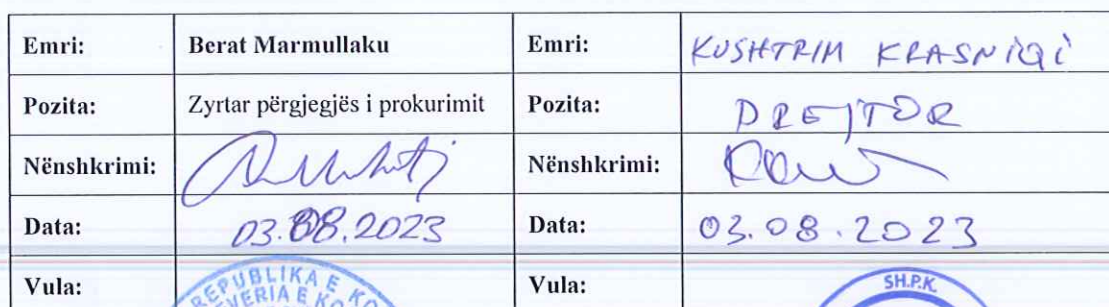 Emri: Berat Marmullaku Emri: KUSHTRIM KRASNIQI
Pozita: Zyrtar përgjegjës i prokurimit Pozita: DREJTOR
Nënshkrimi: Nënshkrimi:
Data: 03.08.2023 Data: 03.08.2023
Vula: Vula:
REPUBLIKA E KO
VERIA E KO
SH.P.K.